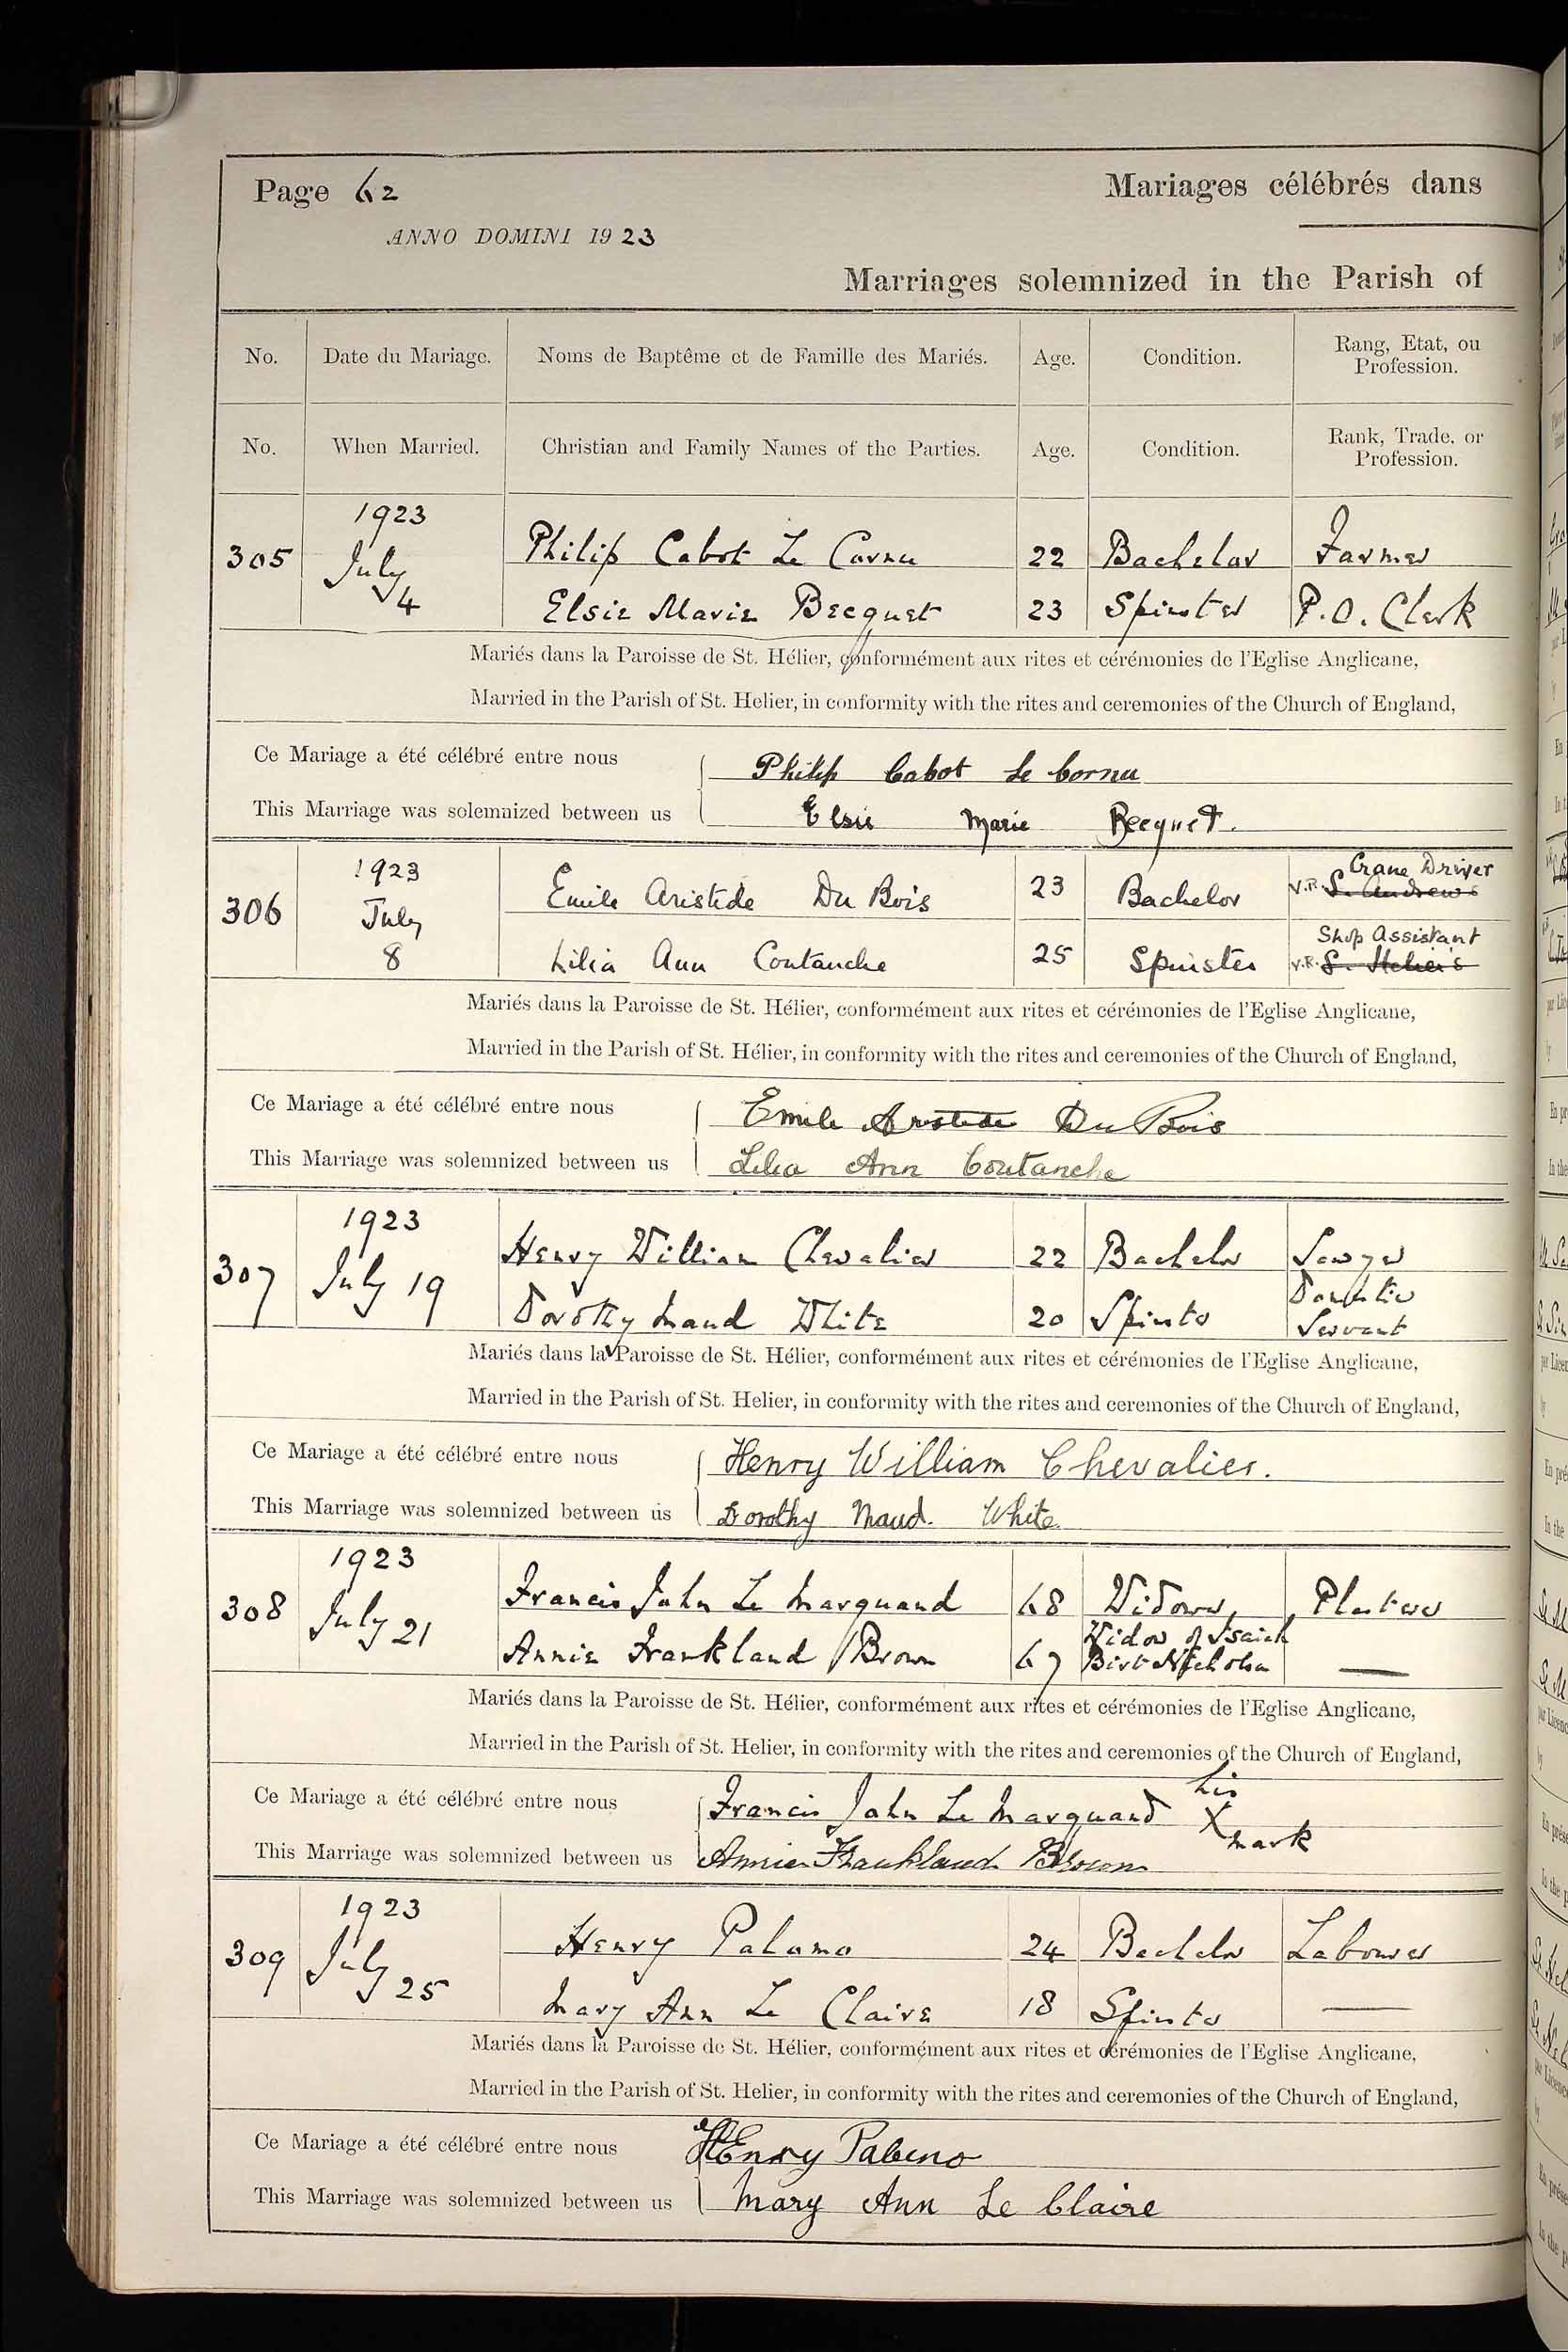 Page 62
Mariages célébrés dans
ANNO DOMINI 1923
Marriages solemnized in the Parish of
No. Date du Mariage. Noms de Baptême et de Famille des Mariés. Age. Condition. Rang, Etat, ou Profession.
No. When Married. Christian and Family Names of the Parties. Age. Condition. Rank, Trade, or Profession.
1923
305 July 4 Philip Cabot Le Cornu 22 Bachelor Farmer
Elsie Marie Becquet 23 Spinster P.O. Clerk
Mariés dans la Paroisse de St. Hélier, conformément aux rites et cérémonies de l'Eglise Anglicane,
Married in the Parish of St. Helier, in conformity with the rites and ceremonies of the Church of England,
Ce Mariage a été célébré entre nous Philip Cabot Le Cornu
This Marriage was solemnized between us Elsie Marie Becquet.
1923 Crane Driver
306 July 8 Emile Aristide Du Bois 23 Bachelor V.R. S. Andrew's
Shop Assistant
Lilia Ann Coutanche 25 Spinster V.R. S. Helier's
Mariés dans la Paroisse de St. Hélier, conformément aux rites et cérémonies de l'Eglise Anglicane,
Married in the Parish of St. Hélier, in conformity with the rites and ceremonies of the Church of England,
Ce Mariage a été célébré entre nous Emile Aristide Du Bois
This Marriage was solemnized between us Lilia Ann Coutanche
1923
307 July 19 Henry William Chevalier 22 Bachelor Sawyer
Dorothy Maud White 20 Spinster Domestic Servant
Mariés dans la Paroisse de St. Hélier, conformément aux rites et cérémonies de l'Eglise Anglicane,
Married in the Parish of St. Helier, in conformity with the rites and ceremonies of the Church of England,
Ce Mariage a été célébré entre nous Henry William Chevalier.
This Marriage was solemnized between us Dorothy Maud. White
1923
308 July 21 Francis John Le Marquand 68 Widower Plasterer
Annie Frankland Brown 67 Widow of Isaiah Birt Nicholson —
Mariés dans la Paroisse de St. Hélier, conformément aux rites et cérémonies de l'Eglise Anglicane,
Married in the Parish of St. Helier, in conformity with the rites and ceremonies of the Church of England,
Ce Mariage a été célébré entre nous Francis John Le Marquand his X mark
This Marriage was solemnized between us Annie Frankland Brown
1923
309 July 25 Henry Palamo 24 Bachelor Labourer
Mary Ann Le Claire 18 Spinster —
Mariés dans la Paroisse de St. Hélier, conformément aux rites et cérémonies de l'Eglise Anglicane,
Married in the Parish of St. Helier, in conformity with the rites and ceremonies of the Church of England,
Ce Mariage a été célébré entre nous Henry
This Marriage was solemnized between us Mary Ann Le Claire